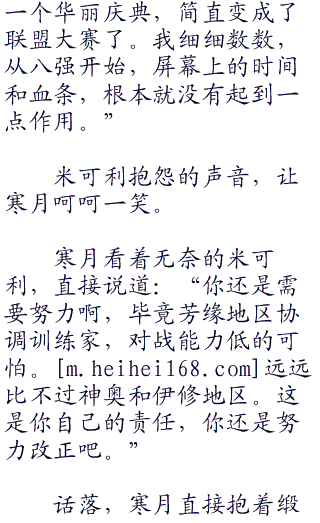 一个华丽庆典，简直变成了
联盟大赛了。我细细数数，
从八强开始，屏幕上的时间
和血条，根本就没有起到一
点作用。”
米可利抱怨的声音，让
寒月呵呵一笑。
寒月看着无奈的米可
利，直接说道：“你还是需
要努力啊，毕竟芳缘地区协
调训练家，对战能力低的可
怕。[m.heihei168.com]远远
比不过神奥和伊修地区。这
是你自己的责任，你还是努
力改正吧。”
话落，寒月直接抱着缎